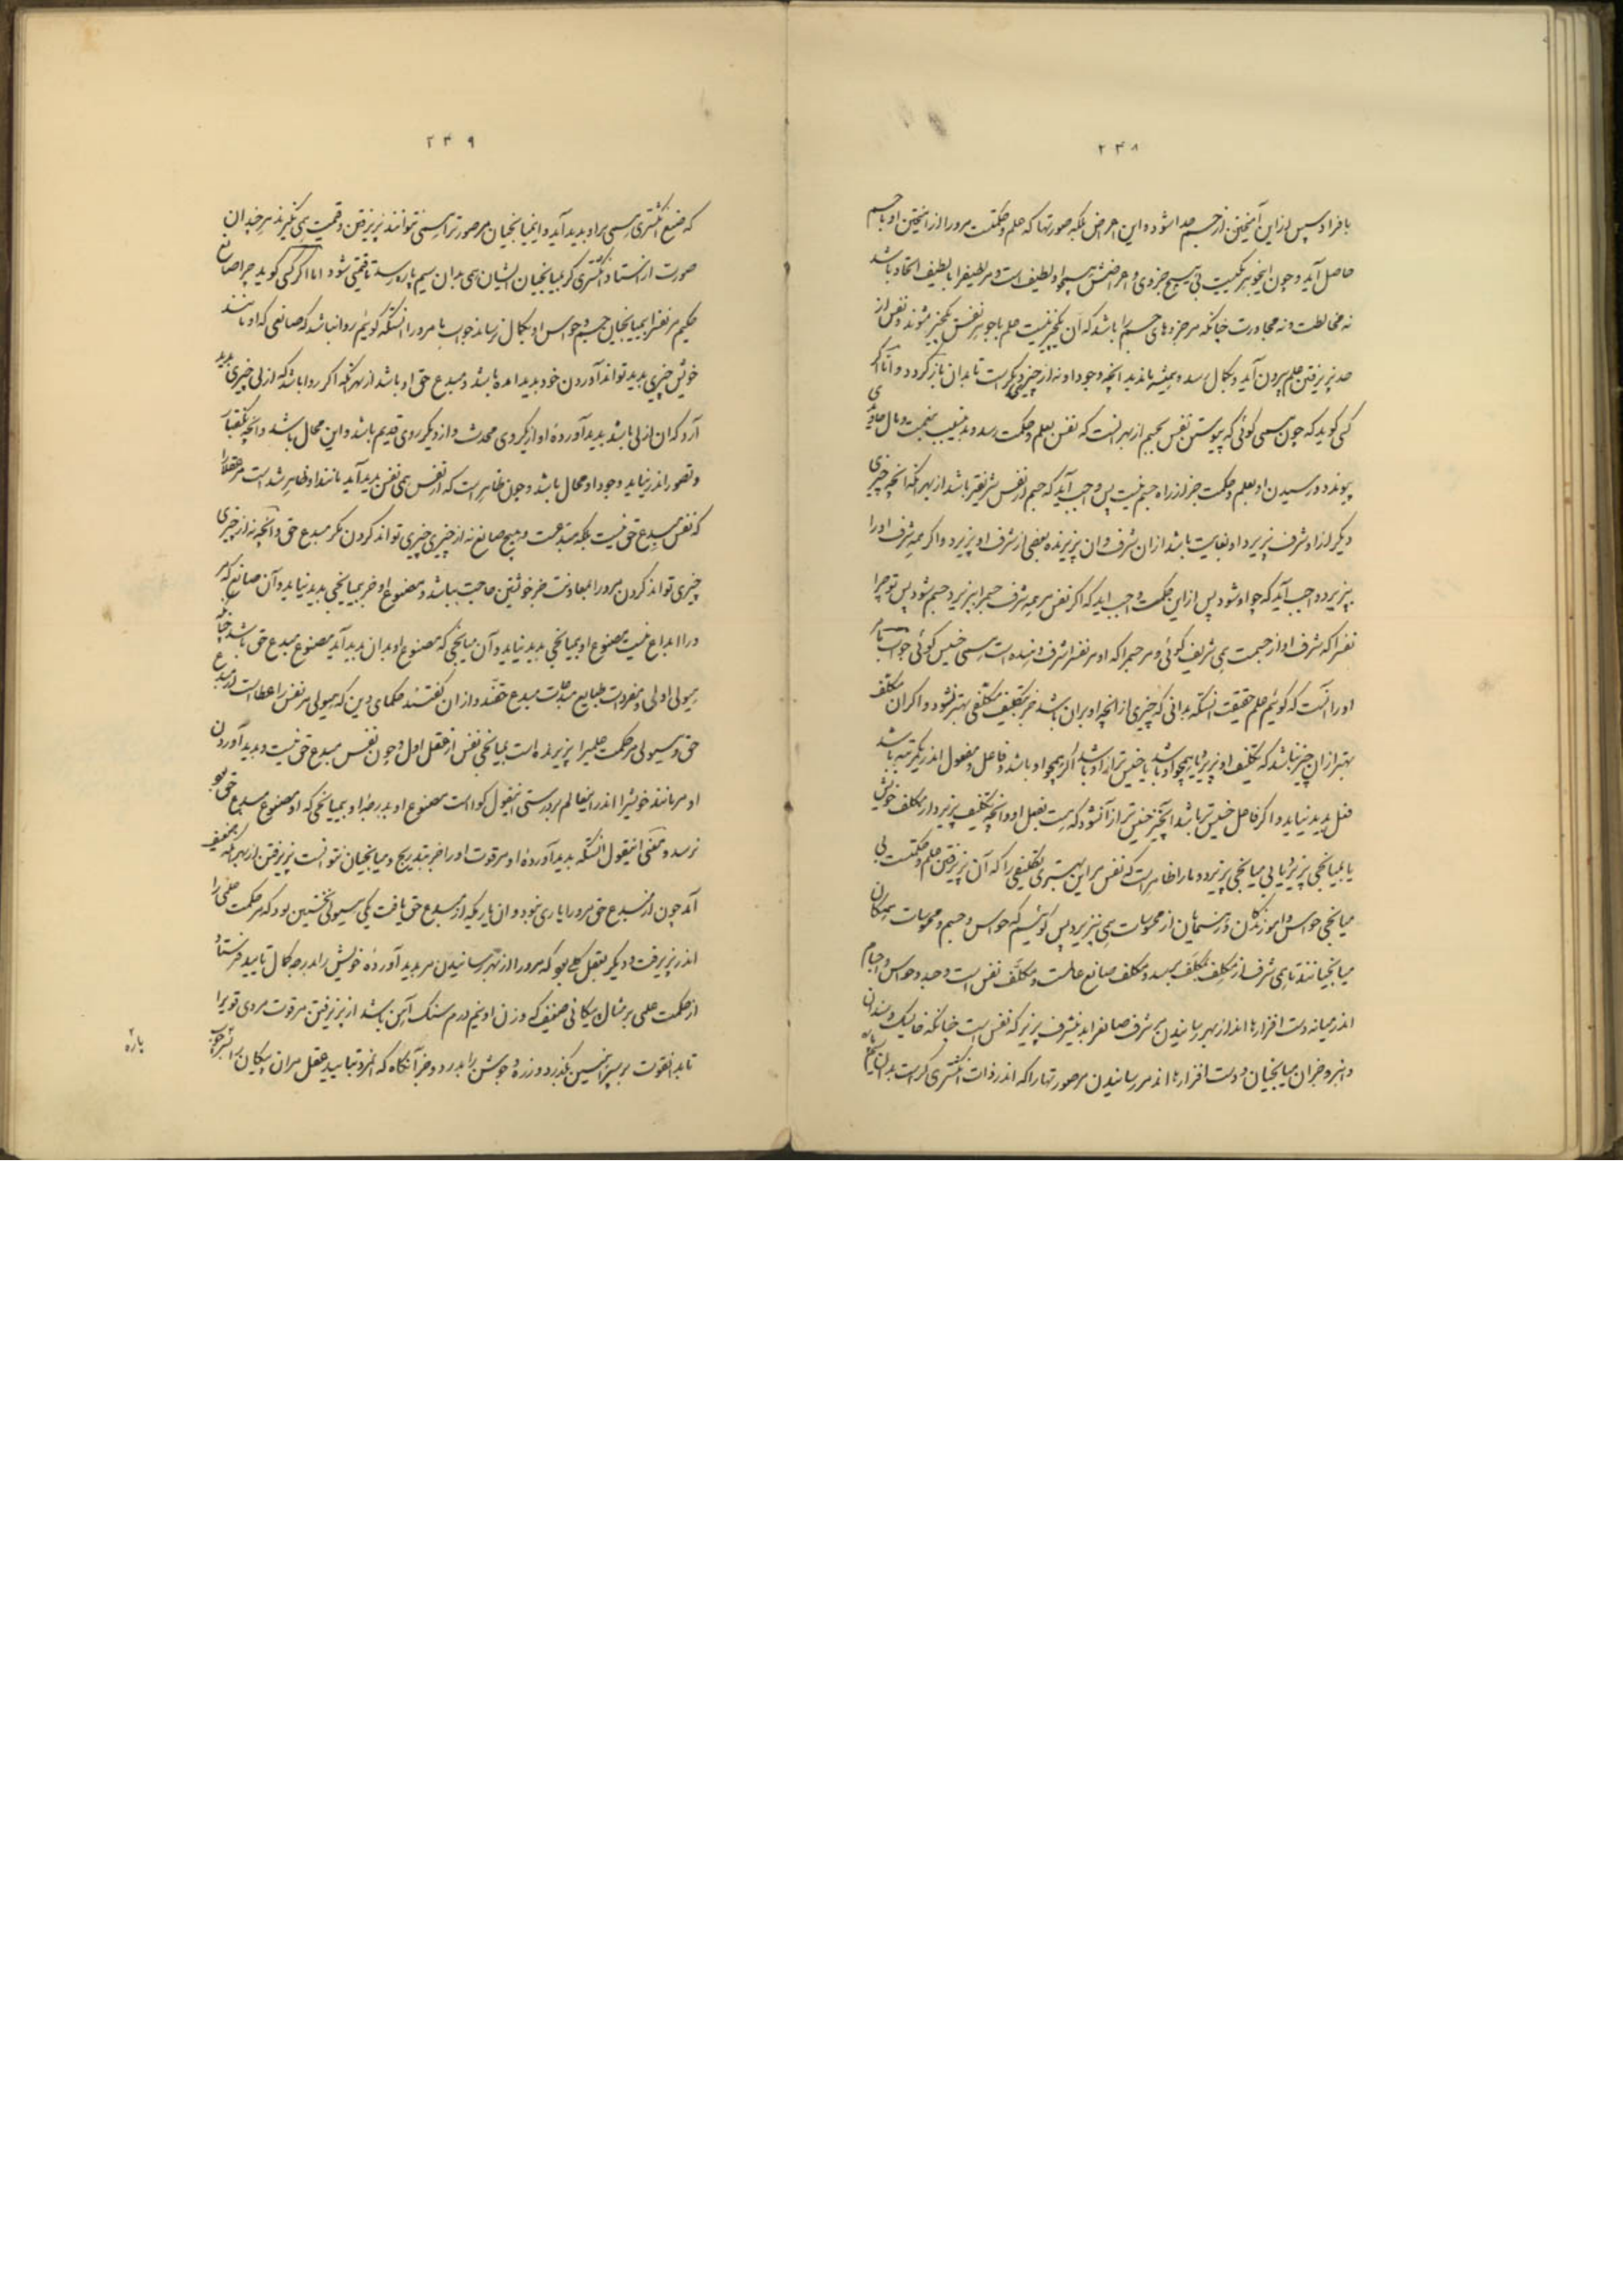 ۲۳۸
با فراد و سپس از این آمیختن از جسم جدا شود و این اعراض بلکه صورتها که علم و حکمت مرورا از آمیختن او با جسم
حاصل آید و چون این جوهریست بی هیچ جزوی و اعراضش همچو او لطیف است و مر لطیف را با لطیف اتحاد باشد
نه مخالطت و نه مجاورت چنانکه مر جزوهای جسم را باشد که آن یکچیز نیست علم با جوهر نفس یکچیز شوند و نفس از
حد پذیرفتن علم بیرون آید و بکمال رسد و همیشه بماند بد انچه وجود او نه از چیزی دیگر است تا بدان باز گردد و اما اگر
کسی گوید که چون همی گوئی که پیوستن نفس بجسم از بهر آنست که نفس بعلم و حکمت رسد و بدین سبب بنعمت و مال جاویدی
پیوندد و رسیدن او بعلم و حکمت جز از راه جسم نیست پس واجب آید که جسم از نفس شریفتر باشد از بهر آنکه آنچه چیزی
دیگر از او شرف پذیرد او بغایت باشد از آن شرف و آن پذیرنده بعضی از شرف او پذیرد و اگر همه شرف او را
بپذیرد واجب آید که چو او شود پس از این حکمت واجب آید که اگر نفس مر همه شرف جسم را بپذیرد جسم شود پس تو چرا
نفس را که شرف او از جسمست همی شریف گوئی و مر جسم را که او مر نفس را شرف دهنده است همی خسیس گوئی جواب ما مر
او را آنست که گوئیم علم حقیقت آنستکه بدانی که چیزی از آنچه او بر آن باشد جز بتکلیف مکلفی بهتر نشود و اگر آن مکلف
بهتر از آن چیز نباشد که تکلیف او پذیرد یا همچو او باشد یا خسیس تر از او باشد اگر همچو او باشد و فاعل و مفعول اندر یکمرتبه باشد
فعل پدید نیاید و اگر فاعل خسیس تر باشد آنچیز خسیس تر از آن شود که هست بفعل او و آنچه تکلیف پذیرد از مکلف خویش
یا بمیانجی پذیرد یا بی میانجی پذیرد و ما را ظاهر است که نفس مر این بهتری تکلیفی را که آن پذیرفتن علم و حکمتست بی
میانجی حواس و آموزندگان و رهنمایان از محسوسات همی نپذیرد پس گوئیم که حواس و جسم و محسوسات همگان
میانجیانند تا همی شرف از مکلف بمکلف برسد و مکلف صانع عالمست و مکلف نفس است و جسد و حواس و اجسام
اندر میانه دست افزارها اند از بهر رسانیدن مر شرف صانع را بدین شرف پذیر که نفس است چنانکه خایسک و سندان
و انبر و جز آن میانجیان و دست افزارها اند مر رسانیدن مر صورتها را که اندر ذات انگشتری گر است بدان سیم پاره
۲۳۹
که صنع انگشتری همی بر او پدید آید و این میانجیان مر صورت را همی نتوانند پذیرفتن و قیمت همی نگیرند هر چند آن
صورت از استاد انگشتری گر بمیانجیان ایشان همی بدان سیم پاره رسد تا قیمتی شود اما اگر کسی گوید چرا صانع
حکیم مر نفس را بی میانجیان جسم و حواس او بکمال نرساند جواب ما مر ورا آنستکه گوئیم روا نباشد که صانعی که او مانند
خویش چیزی پدید تواند آوردن خود پدید آمده باشد و مبدع حق او باشد از بهر آنکه اگر روا باشد که ازلی چیزی پدید
آرد که آن ازلی باشد پدید آورده او از یکروی محدث و از دیگر روی قدیم باشد و این محال باشد و آنچه بگفتار
و تصور اندر نیاید وجود او محال باشد و چون ظاهر است که از نفس همی نفس پدید آید مانند او ظاهر شد است مر عقلا را
که نفس مبدع حق نیست بلکه مبتدعست و هیچ صانع نه از چیزی چیزی تواند کردن مگر مبدع حق و آنچه نه از چیزی
چیزی تواند کردن مر ورا بمعاونت جز خویشتن حاجت نباشد و مصنوع او جز بمیانجی پدید نیاید و آن صانع که مر
ورا ابداع نیست مصنوع او بی میانجی پدید نیاید و آن میانجی که مصنوع او بدان پدید آید مصنوع مبدع حق باشد چنانکه
هیولی اولی و مفردات طبایع مبدعات مبدع حقند و از آن گفتند حکمای دین که هیولی مر نفس را عطا است از مبدع
حق و هیولی مر حکمت علمی را پذیرنده است بمیانجی نفس از عقل اول و چون نفس مبدع حق نیست و پدید آوردن
او مر مانند خویش را اندر این عالم بر درستی این قول گواست مصنوع او بدرجه او بی میانجی که او مصنوع مبدع حق بود
نرسد و معنی این قول آنستکه پدید آورده او مر قوت او را جز بتدریج و میانجیان نتوانست پذیرفتن از بهر آنکه ضعیف
آمد چون از مبدع حق مر ورا یاری نبود و آن یاری که از مبدع حق یافت یکی هیولی نخستین بود که مر حکمت علمی را
اندر پذیرفت و دیگر عقل کلی بود که مر ورا از بهر رسانیدن مر پدید آورده خویش را بدرجه کمال تایید فرستاد
از حکمت علمی بر مثال پیکانی ضعیف که وزن او نیم درم سنگ آهن باشد از پذیرفتن مر قوت مردی قوی را
تا بدان قوت بر سپر آهنین بگذرد و زره و جوشن را بدرد و جز آنگاه که آنمرد بتایید عقل مر آن پیکان را بر چوب
پاره